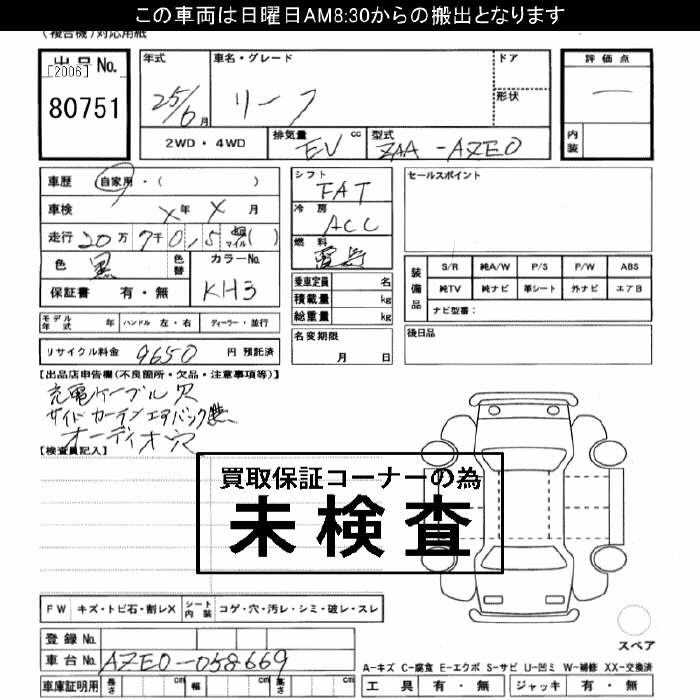 この車両は日曜日AM8:30からの搬出となります
(複合機)対応用紙
出品No.
[2006]
80751
年式
25/6月
車名・グレード
リーフ
ドア
形状
2WD・4WD
排気量 EV cc
型式 ZAA-AZE0
評価点
内装
車歴 自家用・( )
車検 X年 X月
走行 20万 7千 0,5 マイル( )
色 黒 色替 カラーNo. KH3
保証書 有・無
シフト FAT
冷房 ACC
燃料
乗車定員 名
積載量 kg
総重量 kg
名変期限
月 日
セールスポイント
装備品
S/R 純A/W P/S P/W ABS
純TV 純ナビ 革シート 外ナビ エアB
ナビ型番:
後日品
モデル年式 年 ハンドル 左・右 ディーラー・並行
リサイクル料金 9650 円 預託済
【出品店申告欄(不良箇所・欠品・注意事項等)】
充電ケーブル欠
サイドカーテンエアバック無
オーディオ欠
【検査員記入】
買取保証コーナーの為
未検査
FW キズ・トビ石・割レX シート内装 コゲ・穴・汚レ・シミ・破レ・スレ
登録No.
車台No. AZE0-058669
車庫証明用 長さ cm 幅 cm 高さ cm
スペア
A-キズ C-腐食 E-エクボ S-サビ U-凹ミ W-補修 XX-交換済
工具 有・無 ジャッキ 有・無